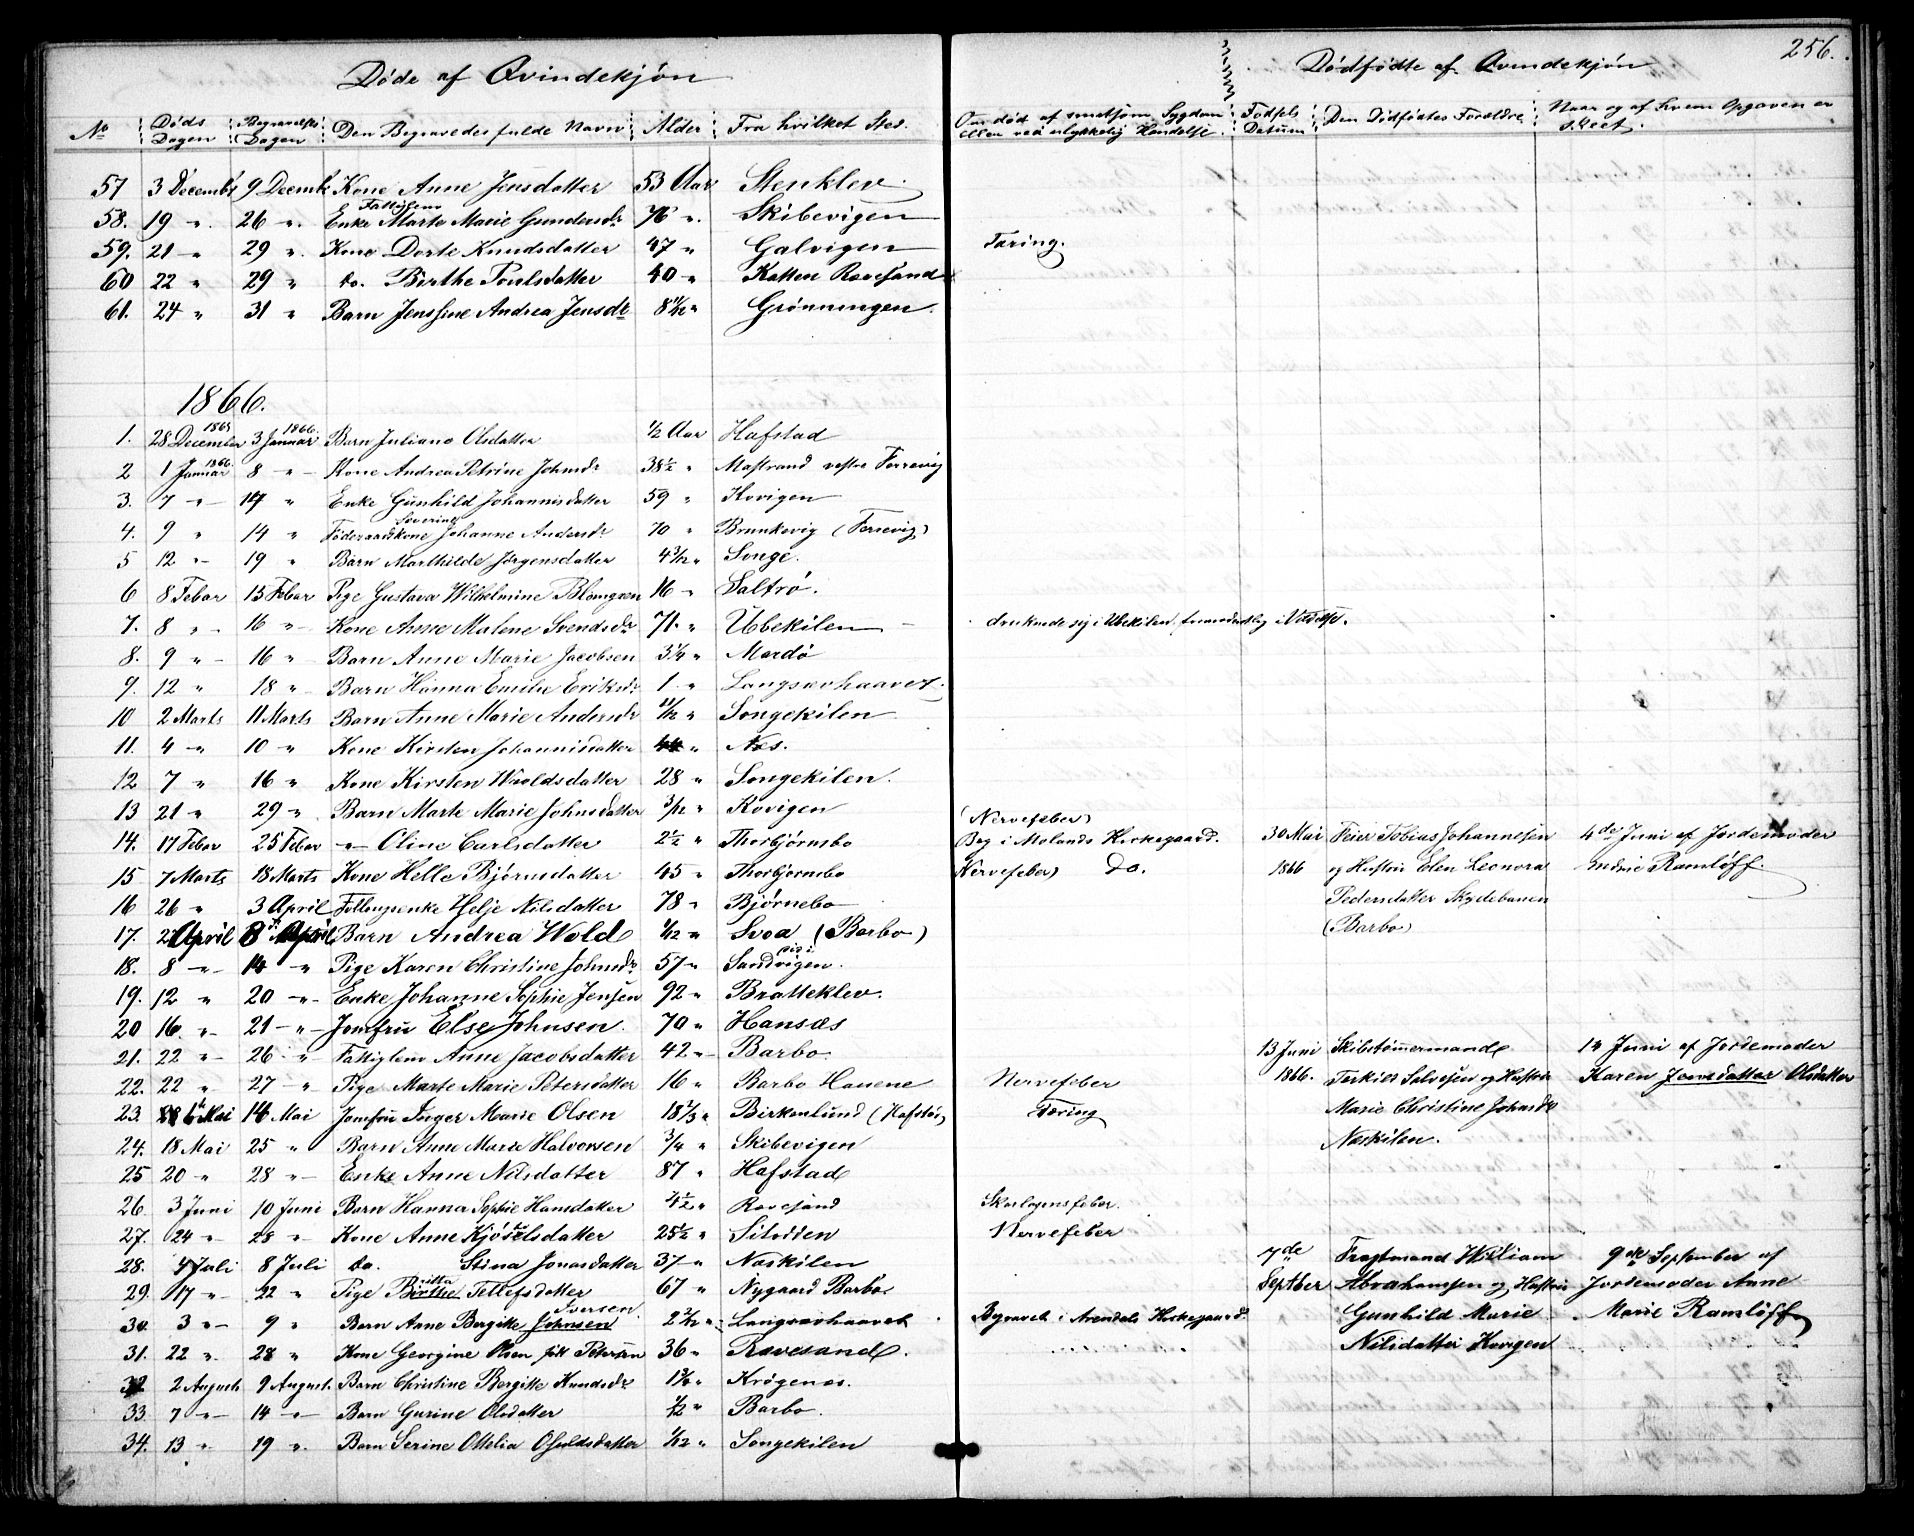 256.
Døde af Qvindekjøn
Dødfødte af Qvindekjøn
No Døds Dagen Begravelses Dagen Den Begravedes fulde Navn Alder Fra hvilket Sted. Om død af smitsom Sygdom eller ved ulykkelig Hendelse. Fødsels Datum Den Dødfødtes Forældre Naar og af hvem Opgaven er skeet.
57 3 Decembr 9 Decembr Kone Anne Jensdatter 53 Aar Stenklev.
58. 19 " 26 " Fattiglem Enke Marte Marie Gundersdr 76 " Skibevigen
59. 21 " 29 " Kone Dorte Knudsdatter 47 " Galvigen Tæring.
60 22 " 29 " do. Birthe Poulsdatter 40 " Katten Revesand
61. 24 " 31 " Barn Jenssine Andrea Jensdr 8 11/12 " Grønningen.
1866.
1. 28 December 1865 3 Januar 1866. Barn Juliane Olsdatter 1/2 Aar Hafstad
2 1 Januar 1866. 8 " Kone Andrea Petrine Johnsdr 38 1/2 " Mastrand vestre Færvig
3. 7 " 14 " Enke Gunhild Johannisdatter 59 " Kovigen
4. 9 " 14 " Føderaadskone Severine Johanne Andersdr 70 " Brunkevig (Færvig)
5 12 " 19 " Barn Marthilde Jørgensdatter 4 3/12 " Songe.
6 8 Febar 15 Febar Pige Gustava Wilhelmine Blomgren 16 " Saltrø.
7. 8 " 16 " Kone Anne Malene Svendsdr 71. " Ubekilen druknede sig i Ubekilen, formodentlig i Vildelse.
8. 9 " 16 " Barn Anne Marie Jacobsen 3 1/4 " Mærdø
9. 12 " 18 " Barn Hanna Emilie Eriksdr 1 " Langsævhaavet.
10 2 Marts 11 Marts Barn Anne Marie Andersdr 11/12 " Songekilen
11. 4 " 10 " Kone Kirsten Johannisdatter 44 " Næs.
12 7 " 16 " Kone Kirsten Wroldsdatter 28 " Songekilen.
13 21 " 29 " Barn Marte Marie Johnsdatter 3/12 " Kovigen
14. 17 Febar 25 Febar " Oline Carlsdatter 2 1/2 " Thorbjørnsbo (Nervefeber) Beg i Molands Kirkegaard.
15 7 Marts 18 Marts Kone Helle Bjørnsdatter 45 " Thorbjørnsbo (Nervefeber) Do.
30 Mai 1866 Feier Tobias Johannesen og Hustru Elen Leonora Pedersdatter Skydebanen (Barbo) 4de Juni af Jordemoder Andrie Ramløff.
16 26 " 3 April Fellougsenke Helje Nilsdatter 78 " Bjørnebo
17. 2 April 8 April Barn Andrea Wold 1/12 " Svoa (Barbo)
18. 8 " 14 " Pige Karen Christine Johnsdr 57 " Sandvigen.
19. 12 " 20 " Enke Johanne Sophie Jensen 92 " Bratteklev.
20 16. " 21 " Jomfru Else Johnsen. 70 " Hansæs
21. 22 " 26 " Fattiglem Anne Jacobsdatter 42 " Barbo
22. 22 " 27 " Pige Marte Marie Petersdatter 16 " Barbo Hauene Nervefeber
23. 6 Mai 14 Mai Jomfru Inger Marie Olsen 18 1/3 " Birkenlund (Hafstad) Tæring
24. 18 Mai 25 " Barn Anne Marie Halvorsen 3/4 " Skibevigen
13 Juni 1866. Skibstømmermand Terkild Salvesen og Hustru Marie Christine Johnsdr Næskilen. 14 Juni af Jordemoder Karen Jonsdatter Olsdatter
25 20 " 28 " Enke Anne Nilsdatter 87 " Hafstad
26. 3 Juni 10 Juni Barn Hanna Sophie Hansdatter 4 1/2 " Revesand Skarlagensfeber.
27. 24 " 28 " Kone Anne Kjøstelsdatter 25 1/2 " Sitodden Nervefeber
28. 4 Juli 8 Juli do. Stina Jonasdatter 37 " Næskilen
29. 17 " 22 " Pige Birthe Britta Tellefsdatter 67 " Nygaard Barbo
30. 3 " 9 " Barn Anne Bergitte Johnsen Iversen 2 2/12 " Langsævhaavet Begravet i Arendals Kirkegaard.
31. 22 " 28 " Kone Georgine Olsen født Petersen 36 " Revesand.
7de Septber Fragtmand William Abrahamsen og Hustru Gunhild Marie Nilsdatter Kovigen 9de September af Jordemoder Anne Marie Ramløff
32 2 August 9 August. Barn Christine Bergitte Knudsdr Krøgenes.
33. 7 " 14 " Barn Gurine Olsdatter 1/2 " Barbo.
34. 13 " 19 " Barn Serine Otelia Osuldsdatter 1/12 " Songekilen